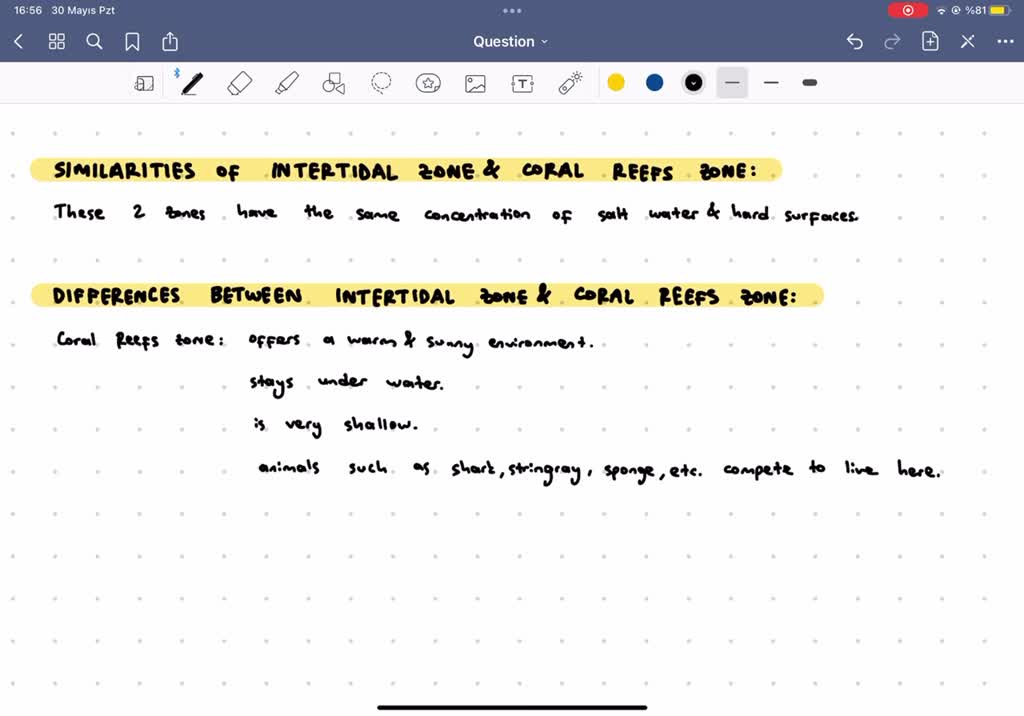 16:56 30 Mayıs Pzt
%81
Question
T
SIMILARITIES OF INTERTIDAL ZONE & CORAL REEFS ZONE:
These 2 zones have the same concentration of salt water & hard surfaces.
DIFFERENCES BETWEEN INTERTIDAL ZONE & CORAL REEFS ZONE:
Coral Reefs zone: offers a warm & sunny environment.
stays under water.
is very shallow.
animals such as shark, stringray, sponge, etc. compete to live here.